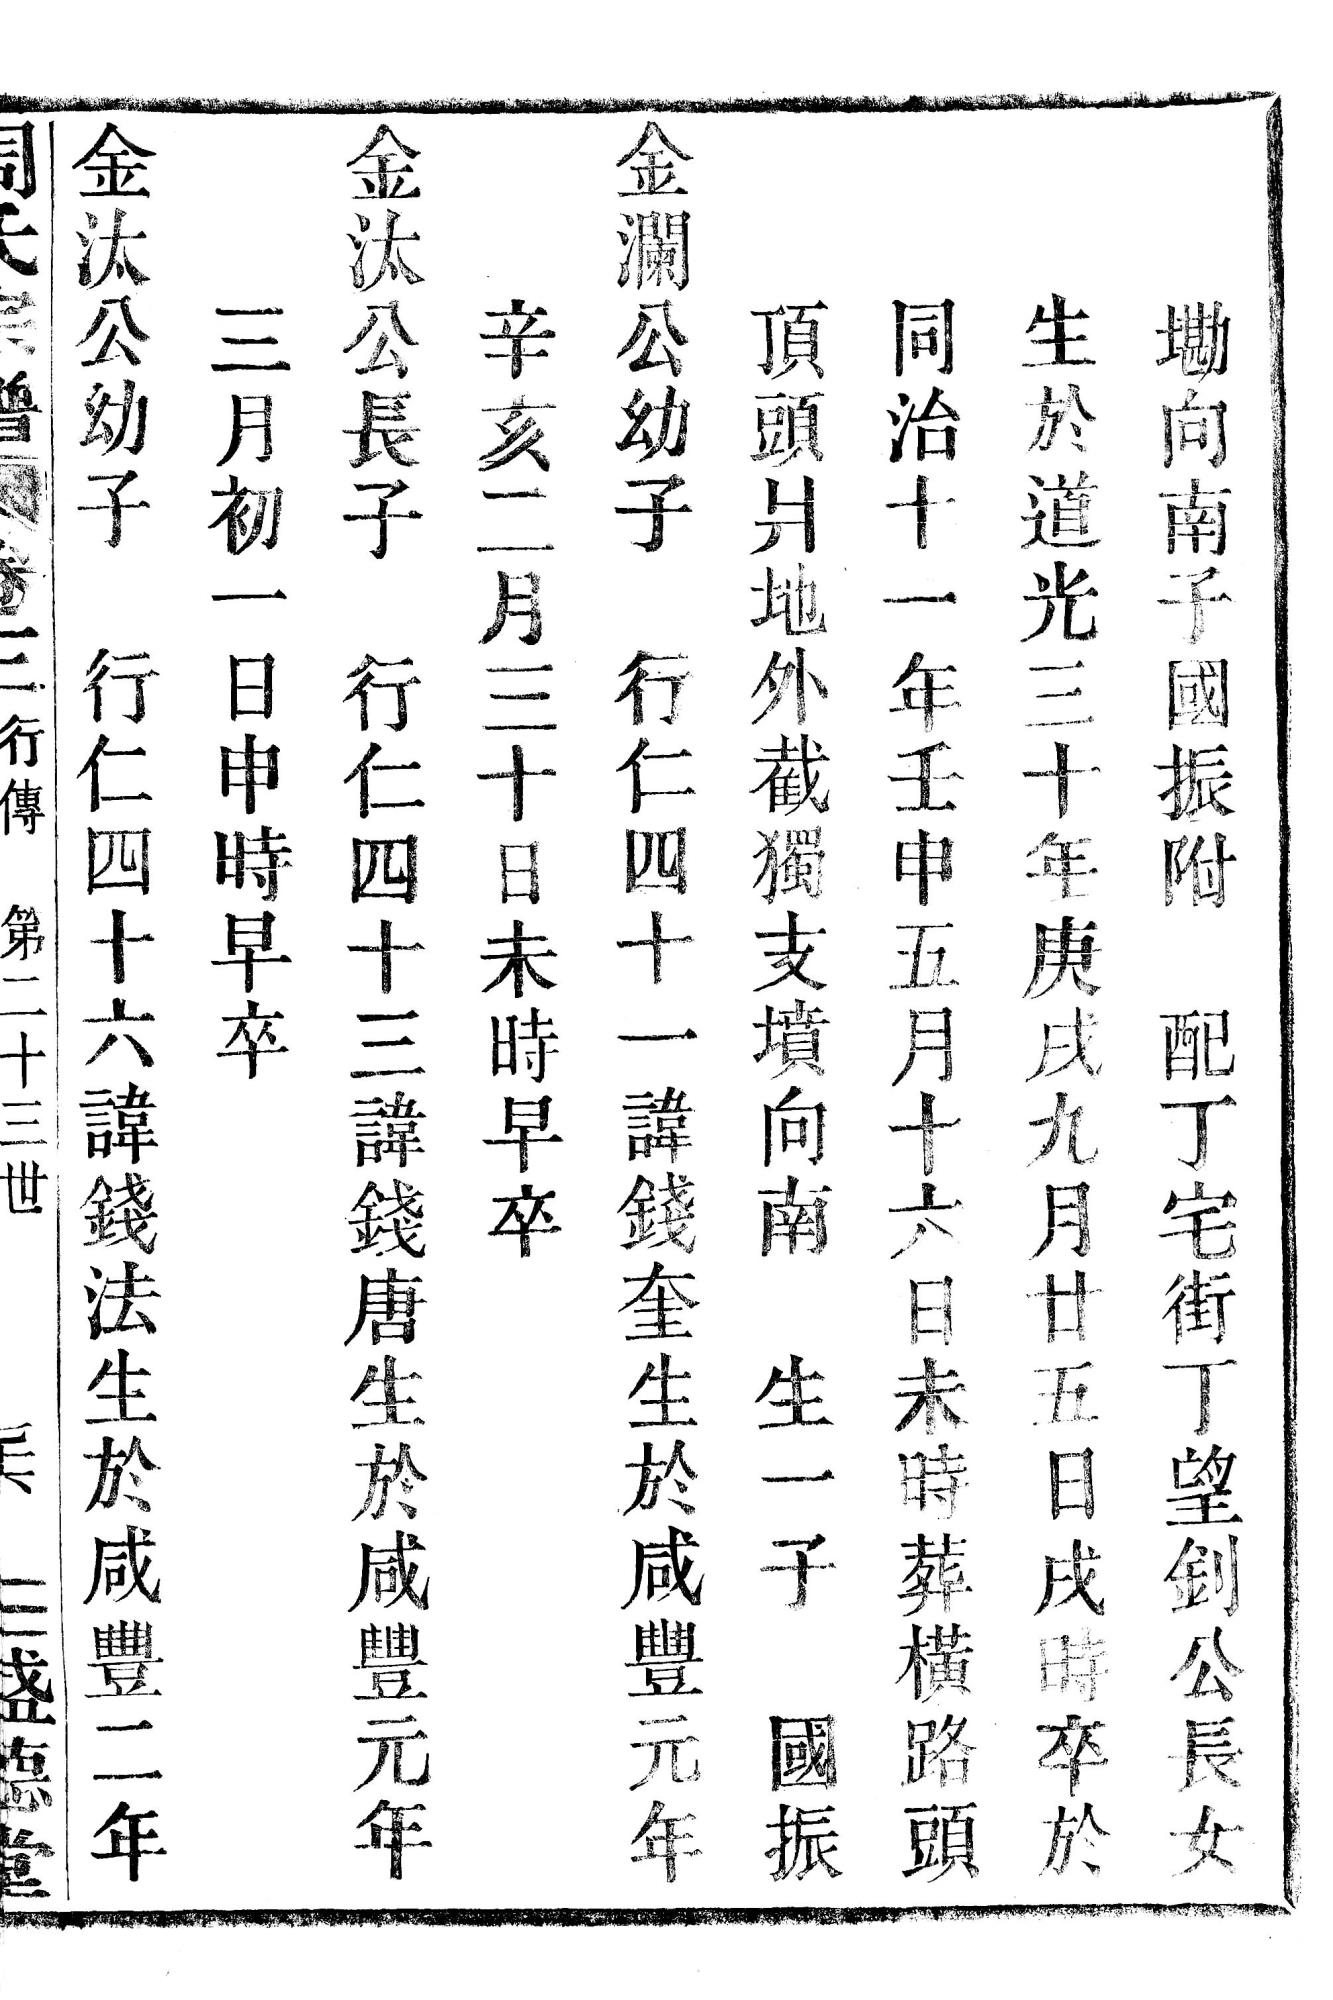 墈向南子國振附　配丁宅街丁望釗公長女
生於道光三十年庚戌九月廿五日戌時卒於
同治十一年壬申五月十六日未時葬橫路頭
頂頭爿地外截獨支墳向南　生一子　國振
金瀾公幼子　行仁四十一諱錢奎生於咸豐元年
辛亥二月三十日未時早卒
金汰公長子　行仁四十三諱錢唐生於咸豐元年
三月初一日申時早卒
金汰公幼子　行仁四十六諱錢法生於咸豐二年
周氏宗譜　卷三　行傳　第二十三世　盛德堂